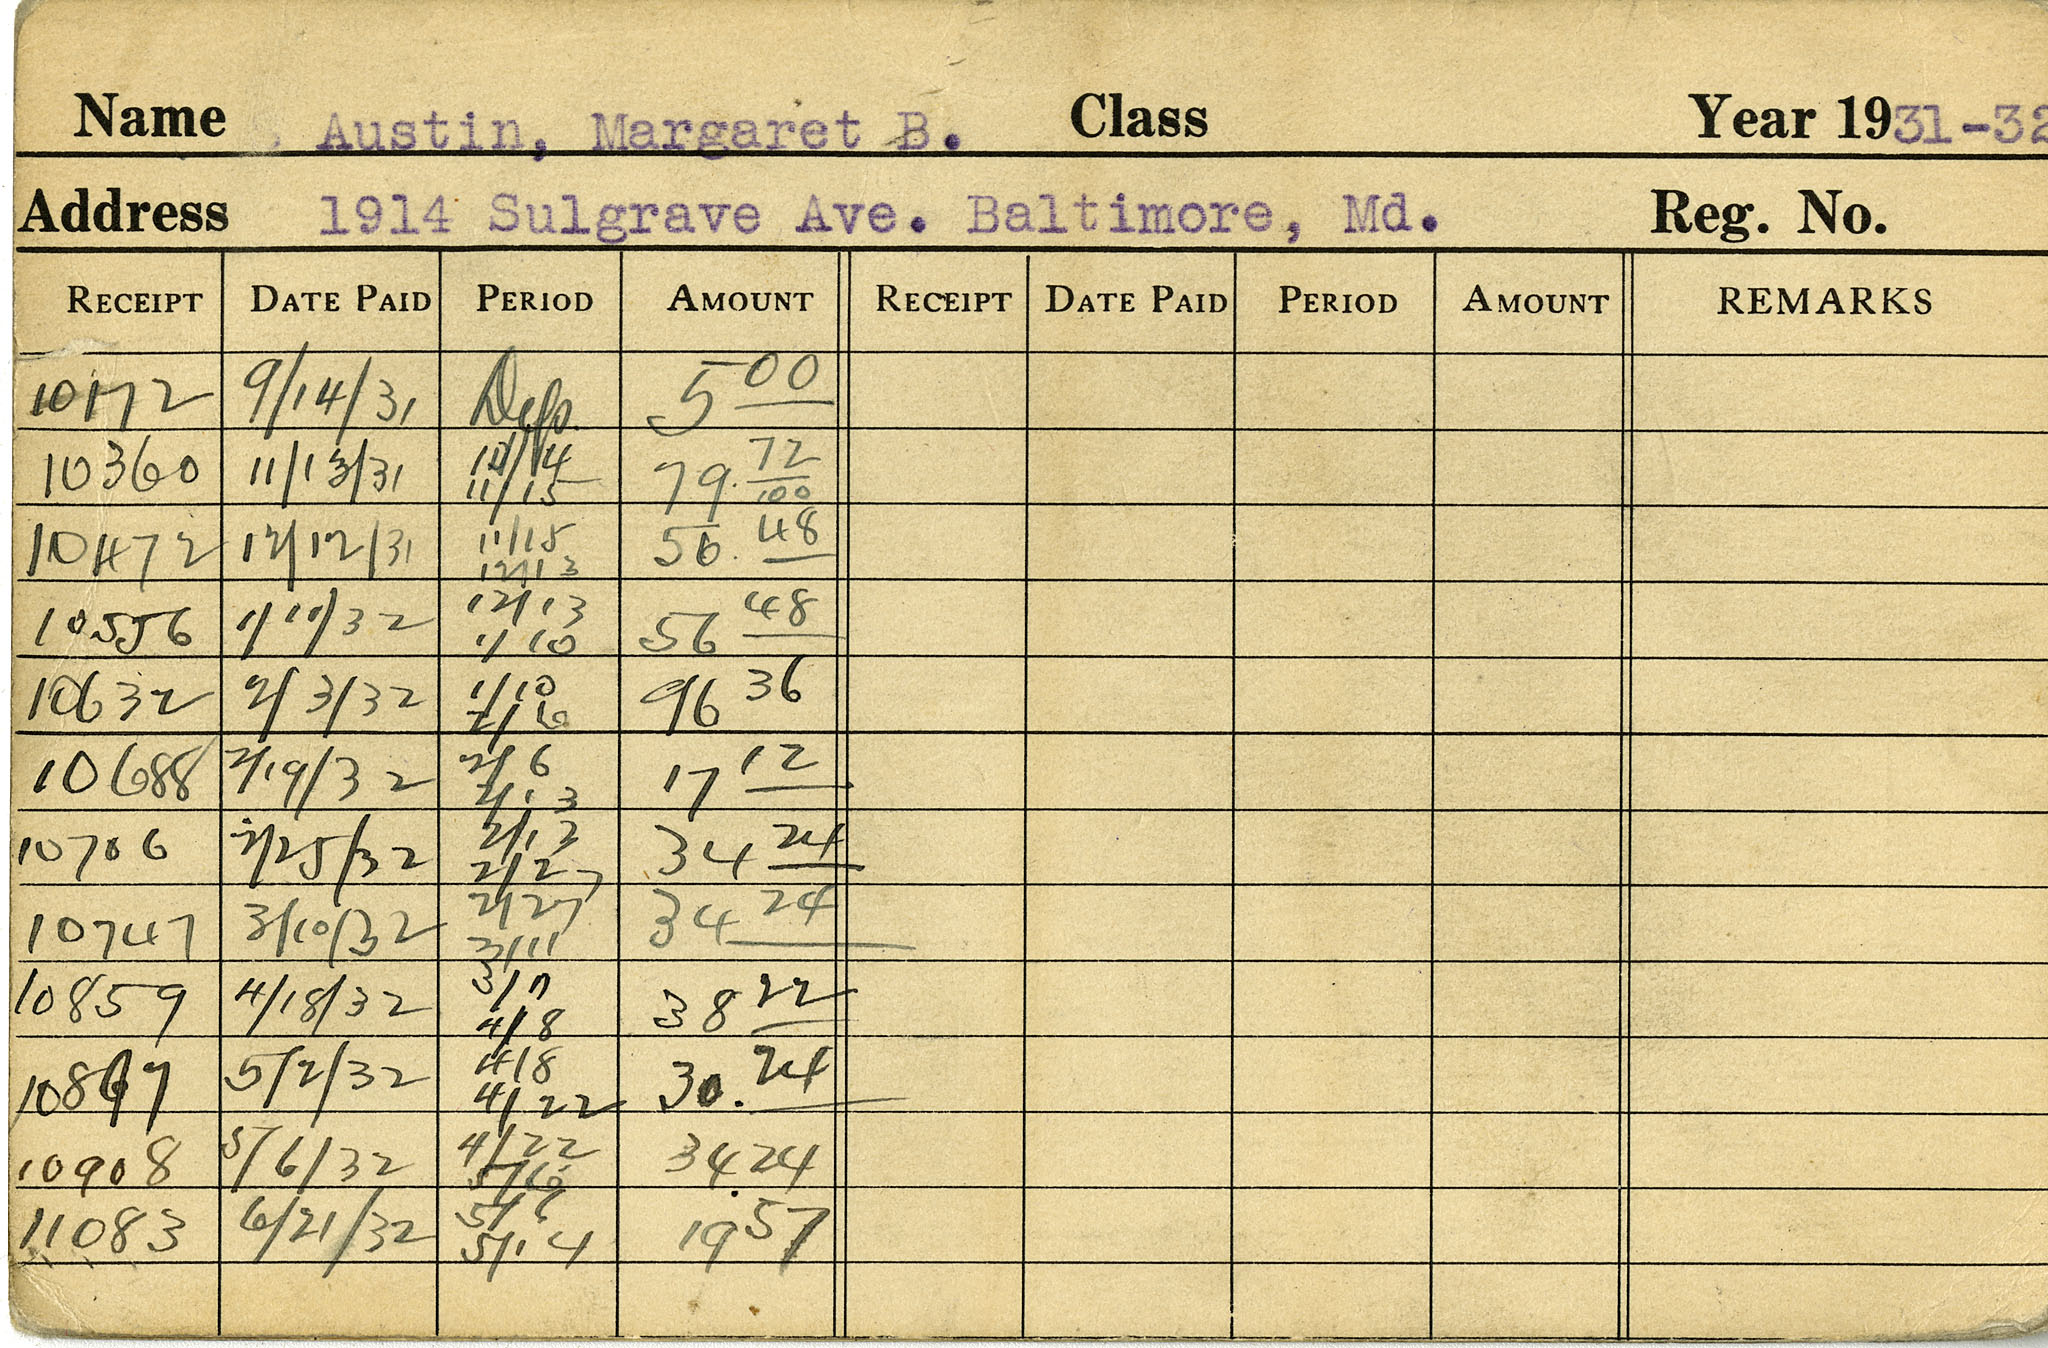 Name Austin, Margaret B. Class Year 1931-32
Address 1914 Sulgrave Ave. Baltimore, Md. Reg. No.
RECEIPT DATE PAID PERIOD AMOUNT RECEIPT DATE PAID PERIOD AMOUNT REMARKS
10172 9/14/31 Dep. 5 00
10360 11/13/31 10/14 79. 72/100
11/15
10472 12/12/31 11/15 56. 48
12/13
10556 1/11/32 12/13 56 48
1/10
10632 2/3/32 1/10 96 36
2/6
10688 2/19/32 2/6 17 12
2/13
10706 2/25/32 2/13 34 24
2/27
10747 3/10/32 2/27 34 24
3/11
10859 4/18/32 3/11 38 22
4/8
5/2/32 4/8 30. 24
4/22
10908 5/6/32 4/22 34.24
5/6
11083 6/21/32 5/6 19 57
5/14